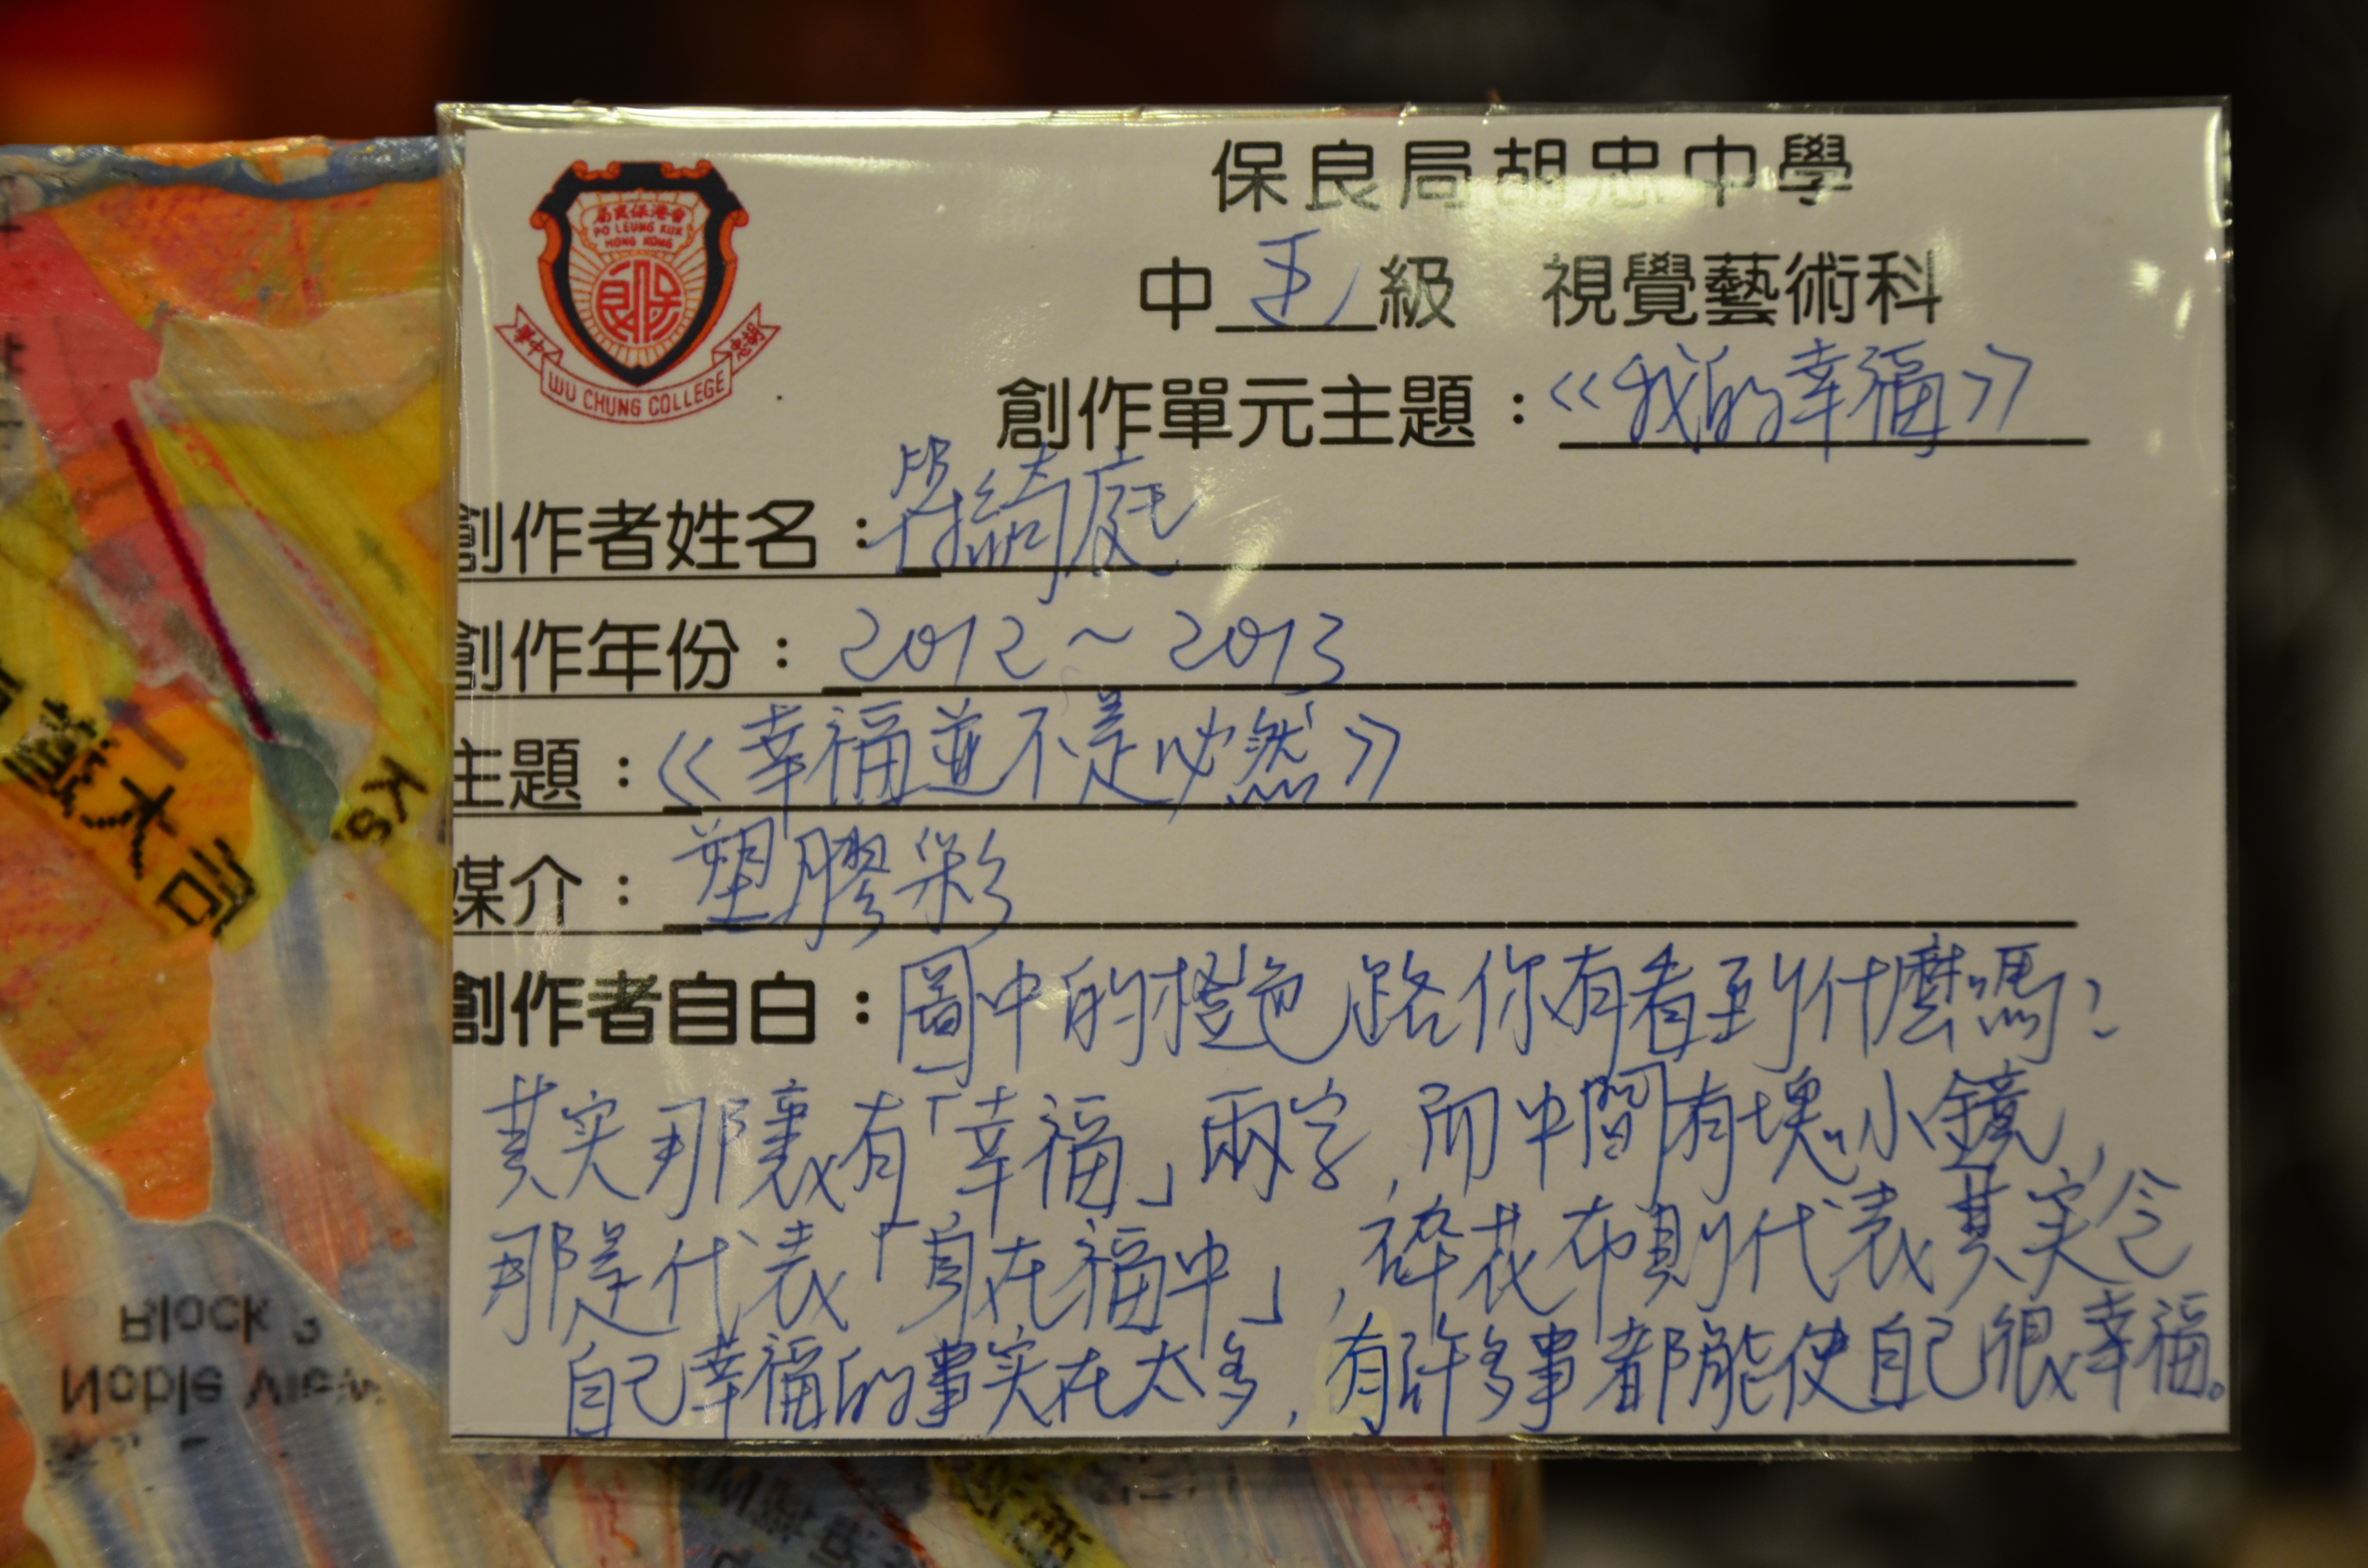 保良局胡忠中學
香港保良局
PO LEUNG KUK
HONG KONG
胡忠 中學
WU CHUNG COLLEGE
中五級 視覺藝術科
創作單元主題：《我的幸福》
創作者姓名：綺庭
創作年份：2012～2013
主題：《幸福並不是必然》
媒介：塑膠彩
創作者自白：圖中的橙色路你有看到什麼嗎？
其实那裏有「幸福」兩字，而中間有塊小鏡，
那是代表「身在福中」，碎花布則代表其实令
自己幸福的事实在太多，有許多事都能使自己很幸福。
Ks
Block 2
Noble View